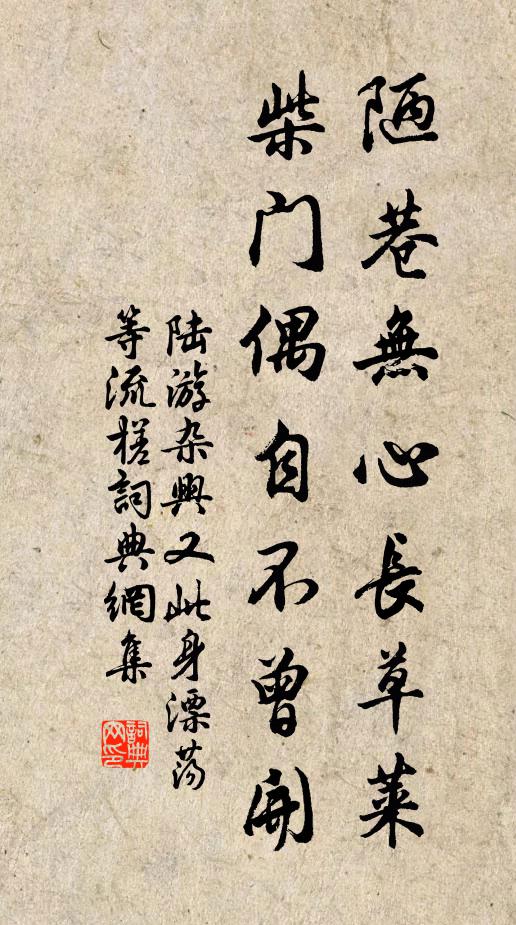 陋巷無心長草萊
柴门偶自不曾開
陆游杂興又此身漂蕩
等流槎詞典網集
詞典网印